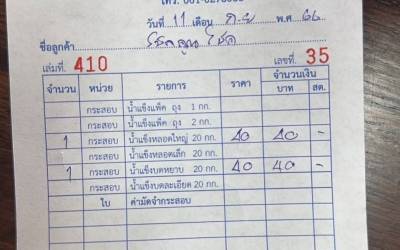 วันที่ 11 เดือน ก.ย พ.ศ 66
ชื่อลูกค้า
เล่มที่ 410 เลขที่ 35
จำนวน หน่วย รายการ ราคา จำนวนเงิน
บาท สต.
กระสอบ น้ำแข็งแพ็ค ถุง 1 กก.
กระสอบ น้ำแข็งแพ็ค ถุง 2 กก.
1 กระสอบ น้ำแข็งหลอดใหญ่ 20 กก. 40 40 -
กระสอบ น้ำแข็งหลอดเล็ก 20 กก.
1 กระสอบ น้ำแข็งบดหยาบ 20 กก. 40 40 -
กระสอบ น้ำแข็งบดละเอียด 20 กก.
ใบ ค่ามัดจำกระสอบ